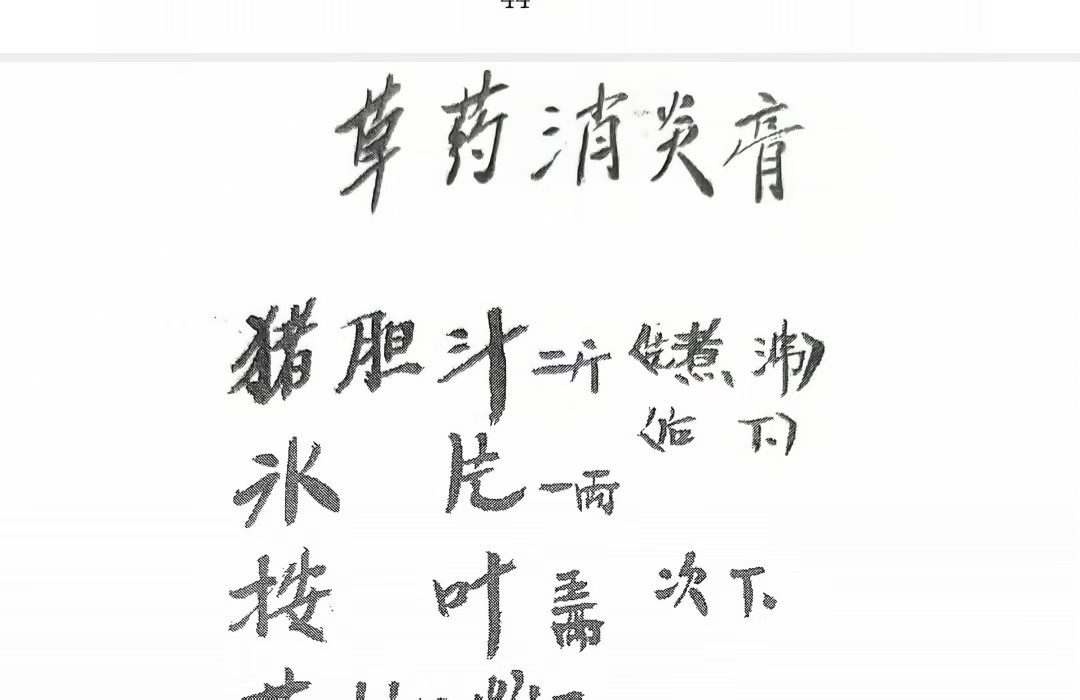 44
草药消炎膏
猪胆汁二斤(煮沸)
冰片一两(后下)
桉叶五两 次下
草